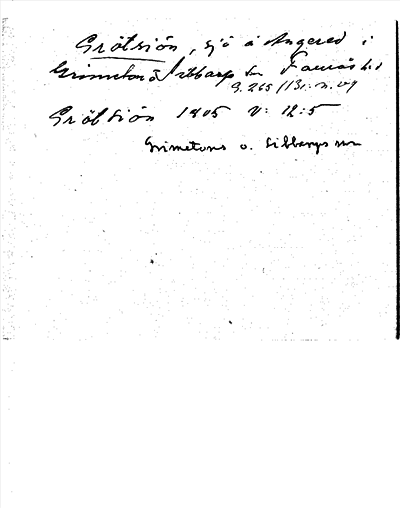 Grötsjön, sjö å Angered i
Grimeton o Sibbarp sn Faurås hd
G. 265
Grötsiön 1805 V: 12:5
Grimetons o. Sibbarps snr